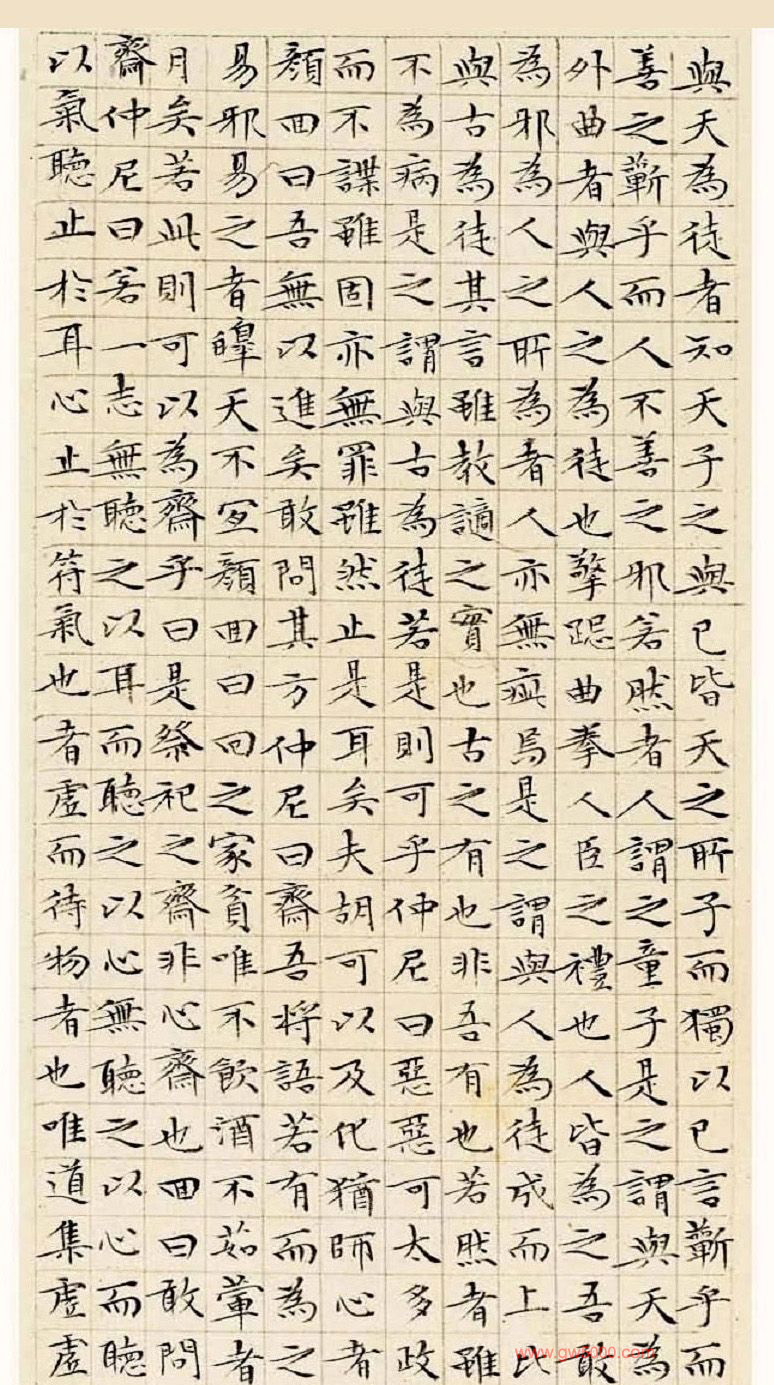 與天為徒者知天子之與已皆天之所子而獨以已言蘄乎而
善之蘄乎而人不善之邪若然者人謂之童子是之謂與天為
外曲者與人之為徒也擎跽曲拳人臣之禮也人皆為之吾敢
為邪為人之所為者人亦無疵焉是之謂與人為徒成而上比
與古為徒其言雖教謫之實也古之有也非吾有也若然者雖
不為病是之謂與古為徒若是則可乎仲尼曰惡惡可太多政
而不諜雖固亦無罪雖然止是耳矣夫胡可以及化猶師心者
顏回曰吾無以進矣敢問其方仲尼曰齋吾將語若有而為之
易邪易之者皞天不宜顏回曰回之家貧唯不飲酒不茹葷者
月矣若此則可以為齋乎曰是祭祀之齋非心齋也回曰敢問
齋仲尼曰若一志無聽之以耳而聽之以心無聽之以心而聽
以氣聽止於耳心止於符氣也者虛而待物者也唯道集虛虛